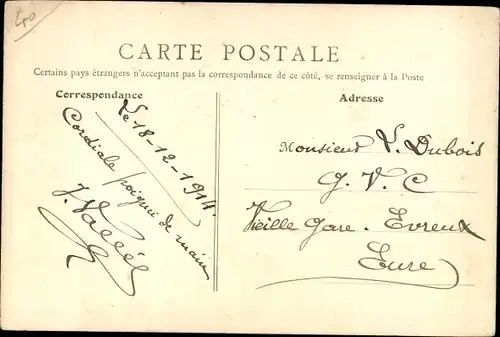 CARTE POSTALE
Certains pays étrangers n'acceptent pas la correspondance de ce côté, se renseigner à la Poste
Correspondance
Adresse
Le 18-12-1914.
Cordiale poignée de main
Monsieur L. Dubois
G. V. C
Vieille Gare. Evreux
Eure